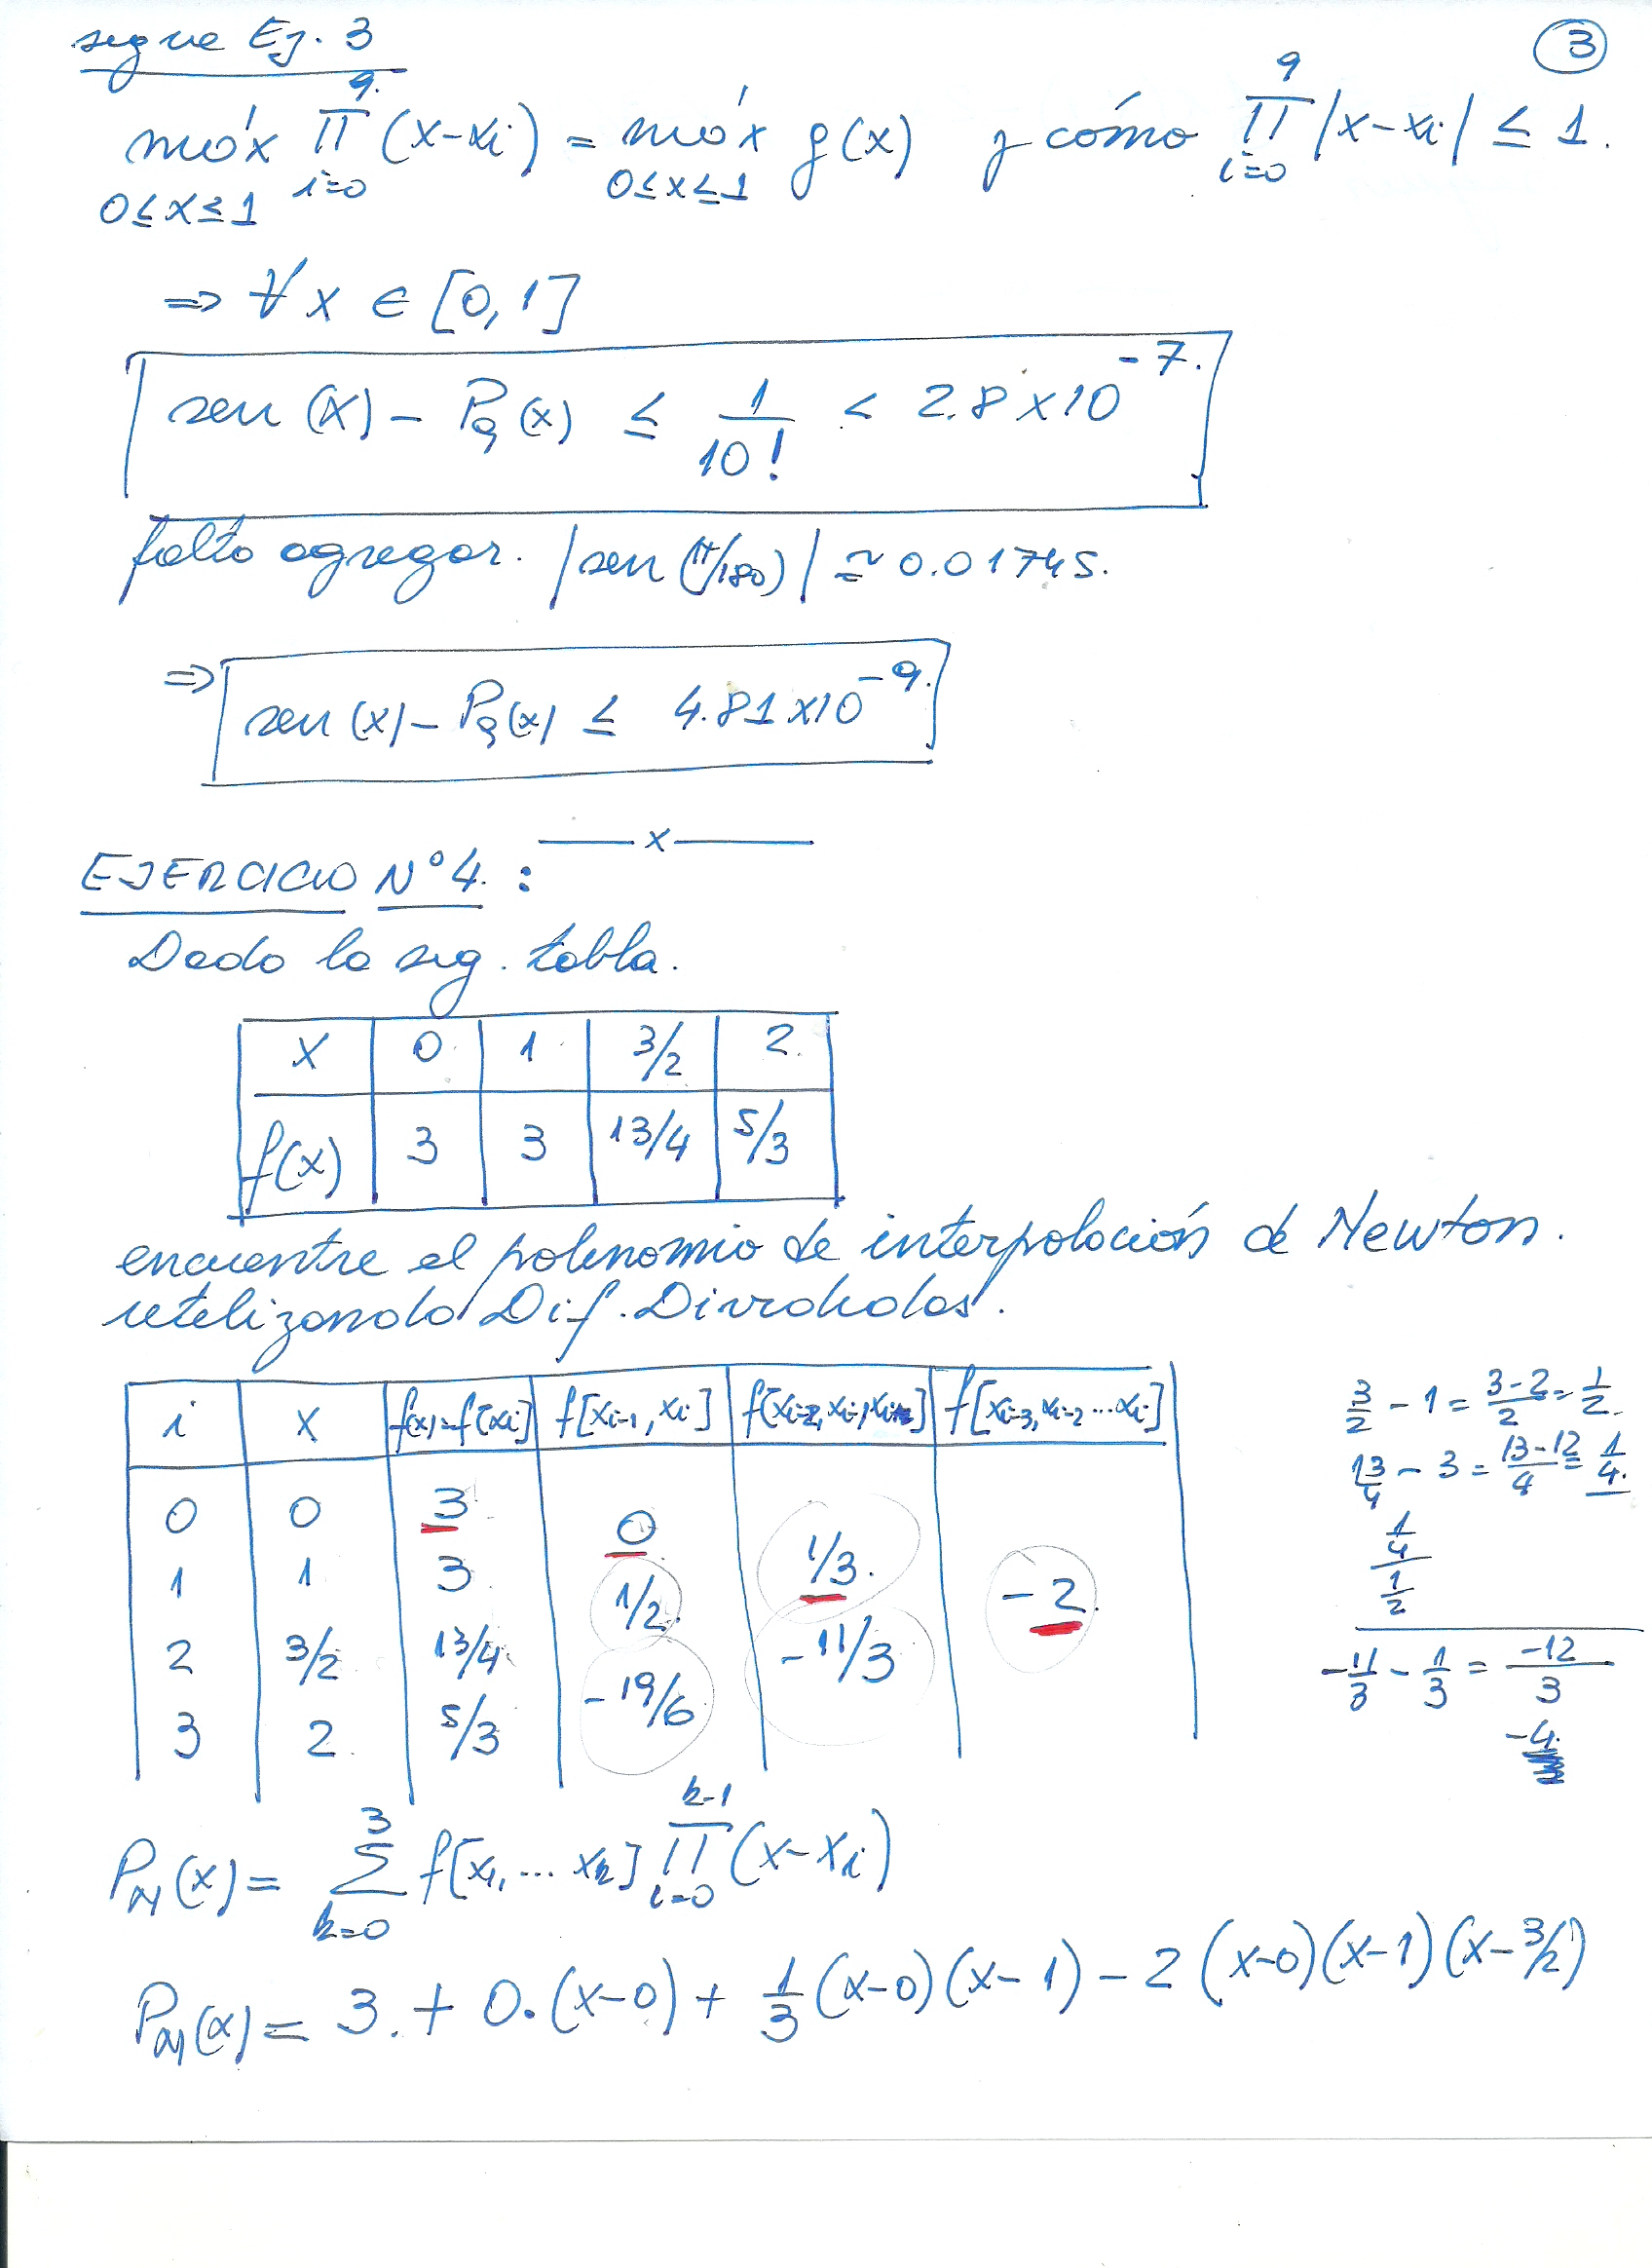 sigue Ej. 3
3
máx_{0≤x≤1} ∏_{i=0}^{9} (x-xi) = máx_{0≤x≤1} g(x) y cómo ∏_{i=0}^{9} |x-xi| ≤ 1.
⇒ ∀ x ∈ [0,1]
sen (x) - P9 (x) ≤ 1/10! < 2.8 x 10^{-7}.
falto agregar. |sen (π/180)| ≃ 0.01745.
⇒ sen (x) - P9 (x) ≤ 4.81 x 10^{-9}.
——x——
EJERCICIO Nº 4. :
Dado la sig. tabla.
x 0 1 3/2 2.
f(x) 3 3 13/4 5/3
encuentre el polinomio de interpolación de Newton.
utilizando Dif. Divididas.
i x f(x)=f[xi] f[xi-1, xi] f[xi-2, xi-1, xi] f[xi-3, xi-2 ... xi]
0 0 3
0
1 1 3 1/3.
1/2. -2.
2 3/2 13/4 -11/3
-19/6
3 2. 5/3
3/2 - 1 = (3-2)/2 = 1/2.
13/4 - 3 = (13-12)/4 = 1/4.
(1/4)/(1/2)
-11/3 - 1/3 = -12/3
-4.
Pn(x) = Σ_{k=0}^{3} f[x1, ... xk] ∏_{i=0}^{k-1} (x-xi)
Pn(x) = 3. + 0.(x-0) + 1/3 (x-0)(x-1) - 2 (x-0)(x-1)(x-3/2)